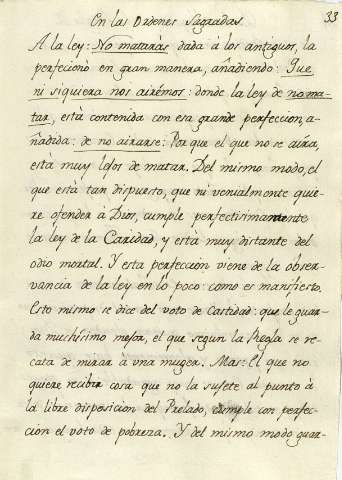 En las Ordenes Sagradas. 33
A la ley: No matarás dada á los antiguos, la
perfecionó en gran manera, añadiendo: Que
ni siquiera nos airémos: donde la ley de no ma-
tar, está contenida con esa grande perfeccion, a-
ñadida: de no airarse: Porque el que no se aíra,
está muy lejos de matar. Del mismo modo, el
que está tan dispuesto, que ni venialmente quie-
re ofender à Dios, cumple perfectisimamente
la ley de la Caridad, y está muy distante del
odio mortal. Y esta perfeccion viene de la obser-
vancia de la ley en lo poco: como es manifiesto.
Esto mismo se dice del voto de Castidad: que le guar-
da muchísimo mejor, el que segun la Regla se re-
cata de mirar à una muger. Mas: El que no
quiere recibir cosa que no la sujete al punto à
la libre disposicion del Prelado, cumple con perfec-
cion el voto de pobreza. Y del mismo modo guar-